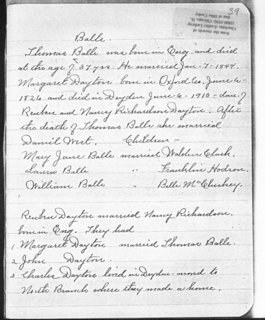 39
Balle
Thomas Balle was born in Eng. and died
at the age of 27 yrs. He married Jan-7-1844.
Margaret Dayton born in Oxford Co. June 6-
1826 and died in Dryden June 6-1910-dau. of
Reuben and Nancy Richardson Dayton. After
the death of Thomas Balle she married
Daniel Children-
Mary Jane Balle married Walden Clark.
Balle " Franklin Hodson.
William Balle " Belle
Reuben Dayton married Nancy Richardson.
born in Eng. They had
1 Margaret Dayton married Thomas Balle.
2 John Dayton.
3 Charles Dayton lived in moved to
North where they made a home.